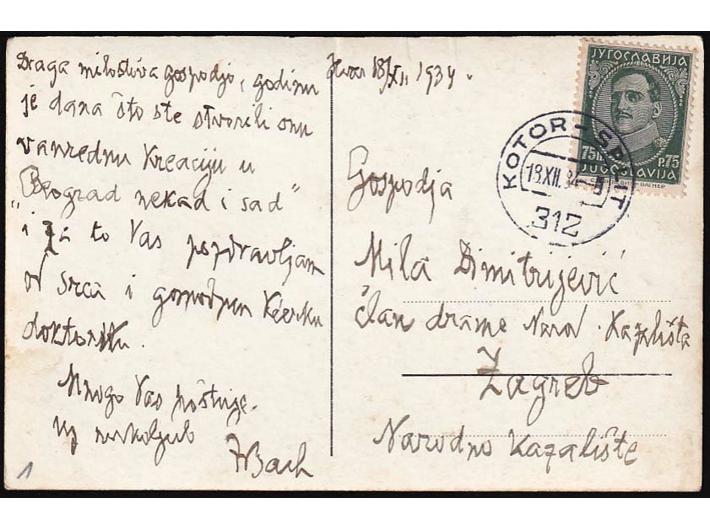 Draga milostiva gospodjo, godinu
je dana što ste stvorili onu
vanrednu kreaciju u
"Beograd nekad i sad"
i za to Vas pozdravljam
od srca i gospodjicu kćerku
doktorku.
Mnogo Vas poštuje.
Bach
1
Hvar 18/XII. 1934.
Gospodja
Mila Dimitrijević
član drame Narod. Kazališta
Zagreb
Narodno Kazalište
ЈУГОСЛАВИЈА
75 P.75
JUGOSLAVIJA
KOTOR - SPLIT
18.XII.34
312